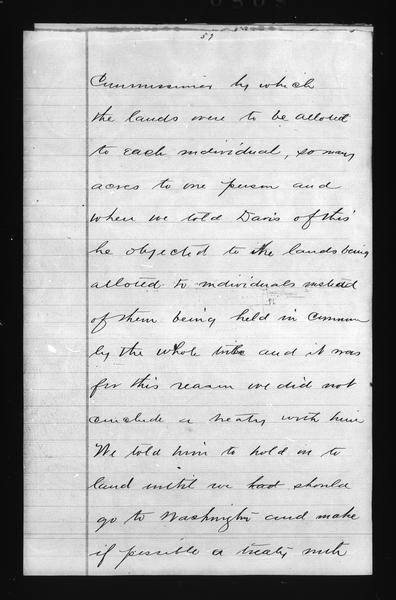 57
Commissioner by which
the lands were to be alloted
to each individual, so many
acres to one person and
when we told Davis of this
he objected to the lands being
alloted to individuals instead
of them being held in common
by the whole tribe and it was
for this reason we did not
conclude a treaty with him
We told him to hold on to
land until we had should
go to Washington and make
if possible a treaty with